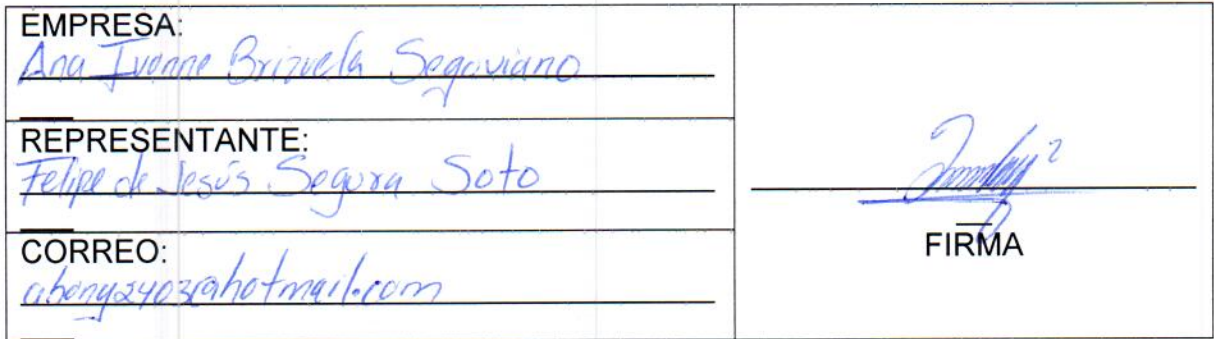 EMPRESA:
Ana Ivonne Brizuela Segoviano
REPRESENTANTE:
Felipe de Jesús Segura Soto
CORREO:
abony2403@hotmail.com
FIRMA